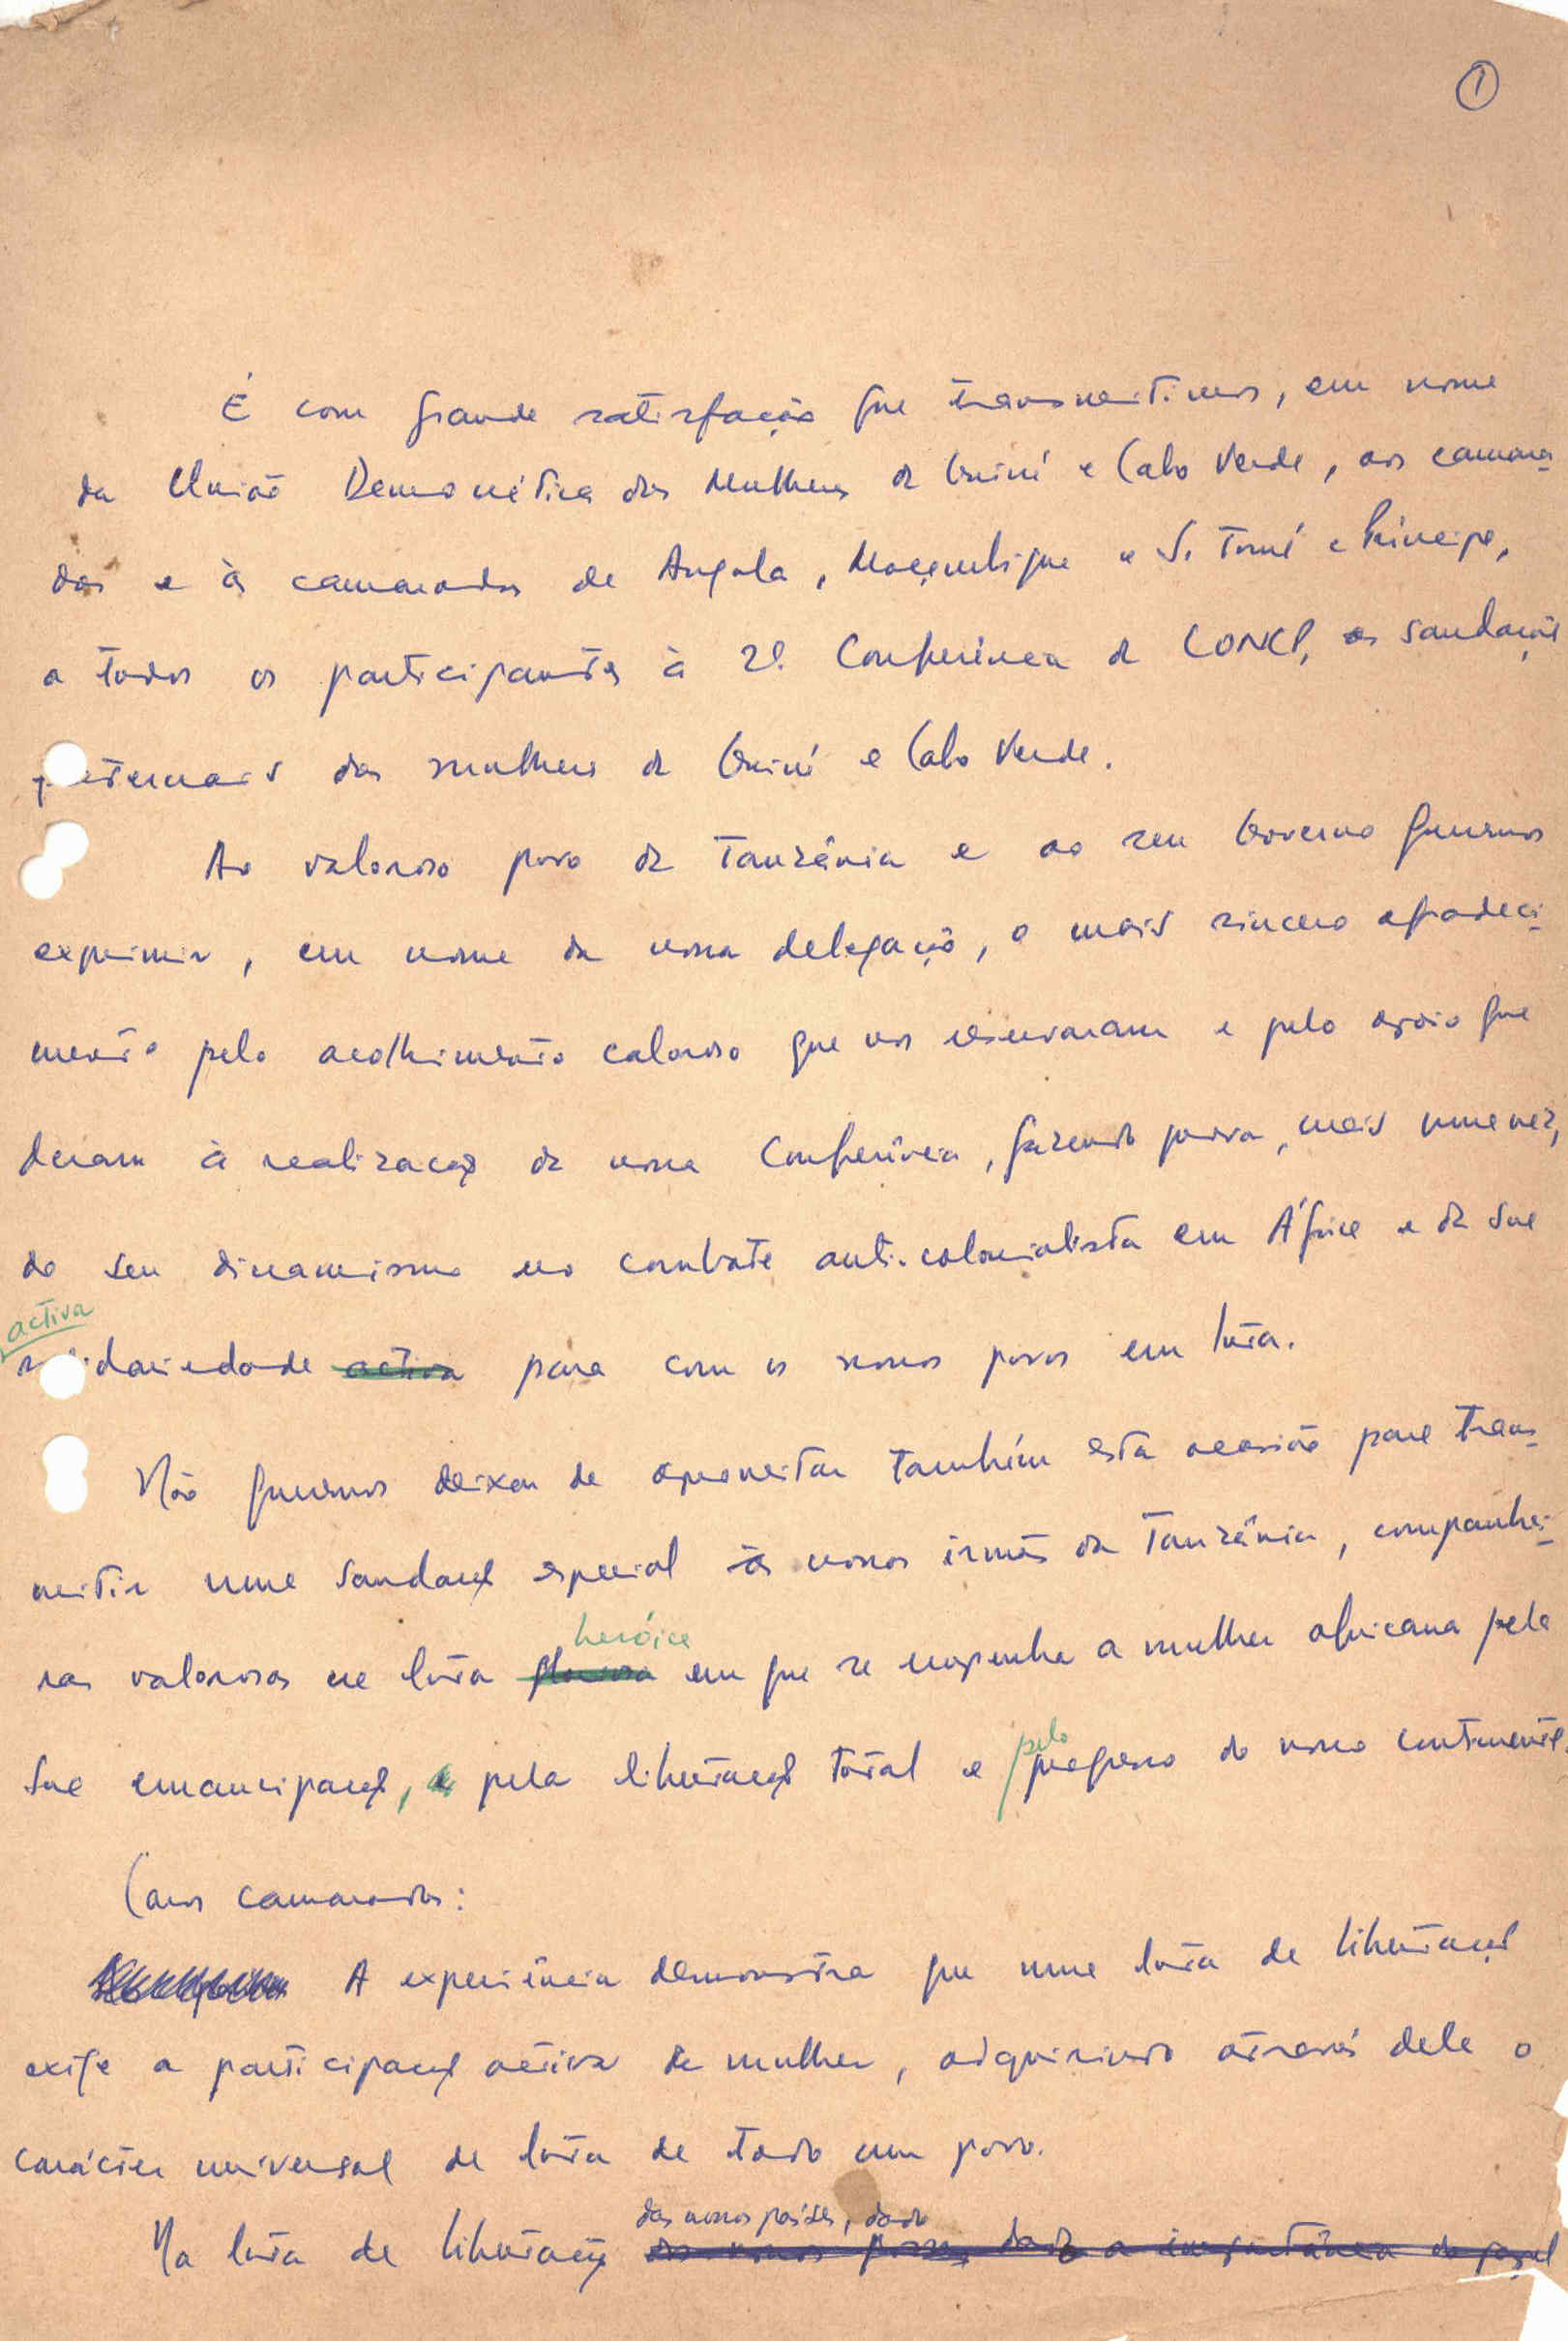 1
É com grande satisfação que transmitimos, em nome
da União Democrática das Mulheres da Guiné e Cabo Verde, aos camara-
das e às camaradas de Angola, Moçambique e S. Tomé e Príncipe,
a todos os participantes à 2ª. Conferência da CONCP, as saudações
fraternais das mulheres da Guiné e Cabo Verde.
Ao valoroso povo da Tanzânia e ao seu Governo queremos
exprimir, em nome da nossa delegação, o mais sincero agradeci-
mento pelo acolhimento caloroso que nos reservaram e pelo apoio que
deram à realização da nossa Conferência, fazendo prova, mais uma vez,
do seu dinamismo no combate anti-colonialista em África e da sua
activa
solidariedade activa para com os nossos povos em luta.
Não queremos deixar de aproveitar também esta ocasião para trans-
mitir uma saudação especial às nossas irmãs da Tanzânia, companhei-
heróica
ras valorosas na luta gloriosa em que se empenha a mulher africana pela
pelo
sua emancipação, e pela libertação total e progresso do nosso continente.
Caros camaradas:
A experiência demonstra que uma luta de libertação
exige a participação activa da mulher, adquirindo através dela o
carácter universal de luta de todo um povo.
dos nossos países, dado
Na luta de libertação dos nossos povos, dada a importância do papel